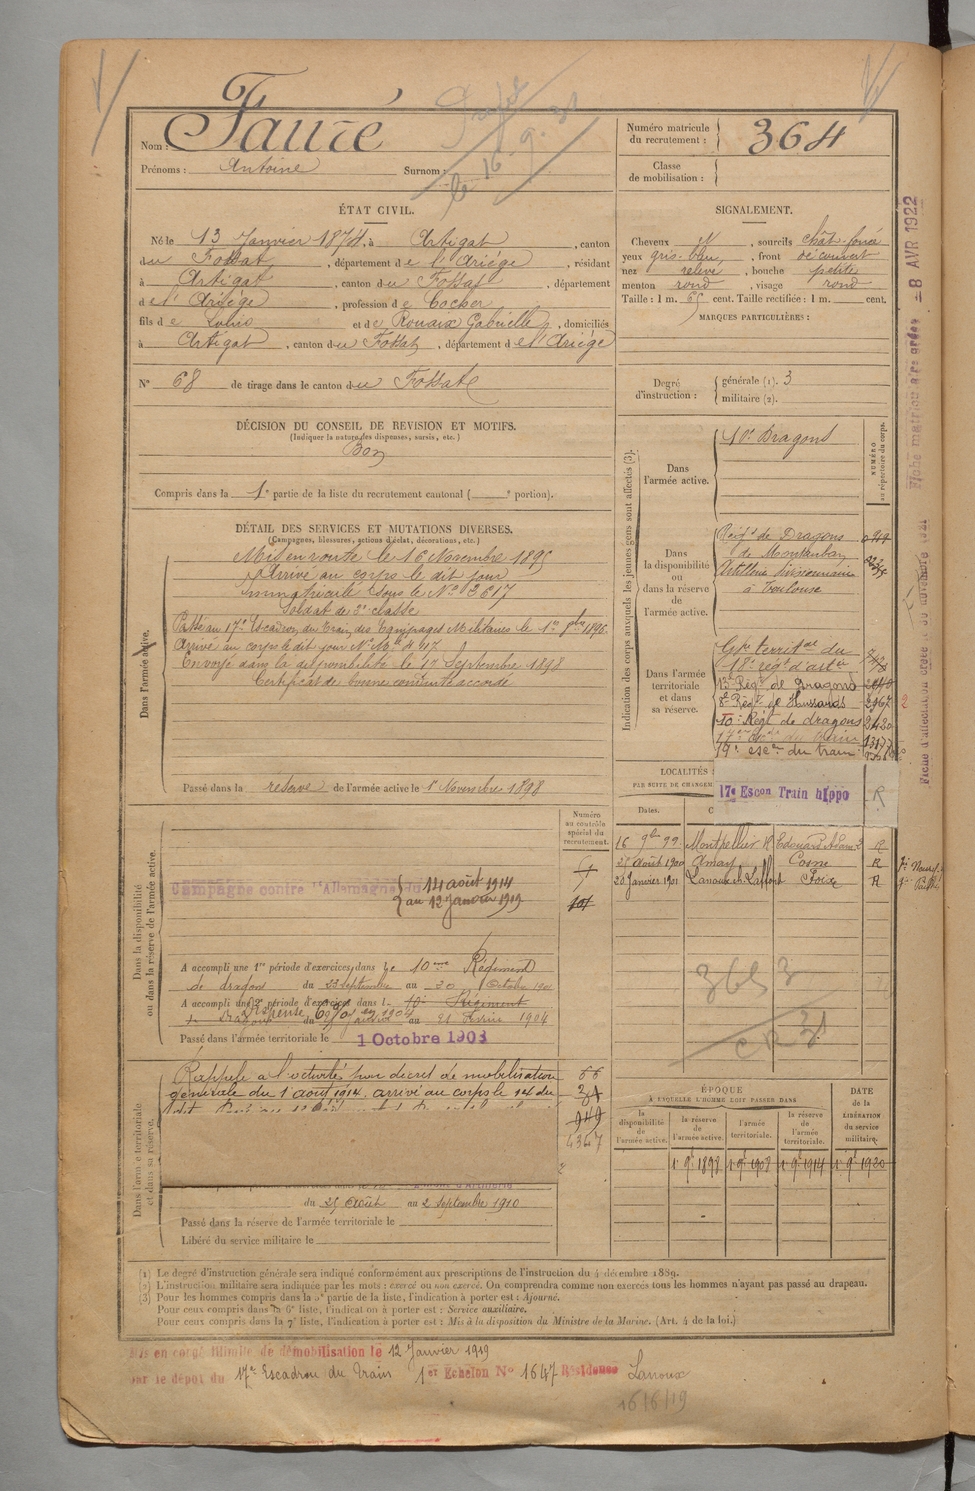 Nom : Faure
Prénoms : Antoine Surnom :
Numéro matricule du recrutement : 364
Classe de mobilisation :
ÉTAT CIVIL.
Né le 13 Janvier 1874, à Artigat, canton
du Fossat, département de l'Ariège, résidant
à Artigat, canton du Fossat, département
de l'Ariège, profession de Cocher
fils de Louis et de Rouaix Gabrielle, domiciliés
à Artigat, canton du Fossat, département de l'Ariège
N° 68 de tirage dans le canton du Fossat
SIGNALEMENT.
Cheveux N, sourcils chât. foncé
yeux gris-bleu, front découvert
nez relevé, bouche petite
menton rond, visage rond
Taille : 1 m. 65 cent. Taille rectifiée : 1 m. cent.
MARQUES PARTICULIÈRES :
Degré d'instruction : générale (1). 3
militaire (2).
DÉCISION DU CONSEIL DE REVISION ET MOTIFS.
(Indiquer la nature des dispenses, sursis, etc.)
Bon
Compris dans la 1e partie de la liste du recrutement cantonal ( e portion).
DÉTAIL DES SERVICES ET MUTATIONS DIVERSES.
(Campagnes, blessures, actions d'éclat, décorations, etc.)
Dans l'armée active.
Mis en route le 16 Novembre 1895
Arrivé au corps le dit jour
Immatriculé sous le N° 3617
Soldat de 2e classe
Passé au 17e Escadron du Train des Equipages Militaires le 1er 9bre 1896
Arrivé au corps le dit jour
Envoyé dans la disponibilité le 17 Septembre 1898
Certificat de bonne conduite accordé
Passé dans la réserve de l'armée active le 1er Novembre 1898
Indication des corps auxquels les jeunes gens sont affectés (3).
NUMÉRO au répertoire du corps.
Dans l'armée active.
10e Dragons
Dans la disponibilité ou dans la réserve de l'armée active.
Régt de Dragons
de Montauban
Artillerie divisionnaire
à Toulouse
Dans l'armée territoriale et dans sa réserve.
Gpe territal du
18e régt d'artie
13e Régt de Dragons
8e Régt de Hussards
10e Régt de dragons
19e escon du train
17e Escon Train hippo
LOCALITÉS
PAR SUITE DE CHANGEM
Dates.
16 9bre 99 Montpellier R
27 août 1900 Cosne R
20 Janvier 1901 Foix R
Dans la disponibilité ou dans la réserve de l'armée active.
Numéro au contrôle spécial du recrutement.
Campagne contre l'Allemagne du 14 août 1914
au 12 Janvier 1919
A accompli une 1re période d'exercices dans le 10eme Régiment
de dragons du 23 septembre au 20 Octobre
A accompli une 2e période d'exercices dans l 10e Régiment
au 21 Février 1904
Passé dans l'armée territoriale le 1 Octobre 1903
Dans l'armée territoriale et dans sa réserve.
Rappelé à l'activité par décret de mobilisation
générale du 1 août 1914 arrivé au corps le 14 du
4367
du 25 Août au 2 septembre 1910
Passé dans la réserve de l'armée territoriale le
Libéré du service militaire le
ÉPOQUE
À LAQUELLE L'HOMME DOIT PASSER DANS
la disponibilité de l'armée active.
la réserve de l'armée active.
l'armée territoriale.
la réserve de l'armée territoriale.
DATE de la LIBÉRATION du service militaire.
(1) Le degré d'instruction générale sera indiqué conformément aux prescriptions de l'instruction du 4 décembre 1889.
(2) L'instruction militaire sera indiquée par les mots : exercé ou non exercé. On comprendra comme non exercés tous les hommes n'ayant pas passé au drapeau.
(3) Pour les hommes compris dans la 5e partie de la liste, l'indication à porter est : Ajourné.
Pour ceux compris dans la 6e liste, l'indication à porter est : Service auxiliaire.
Pour ceux compris dans la 7e liste, l'indication à porter est : Mis à la disposition du Ministre de la Marine. (Art. 4 de la loi.)
Mis en congé illimité de démobilisation le 12 Janvier 1919
par le dépôt du 17e Escadron du Train 1er Echelon N° 1647 Résidence Lanoux
16/6/19